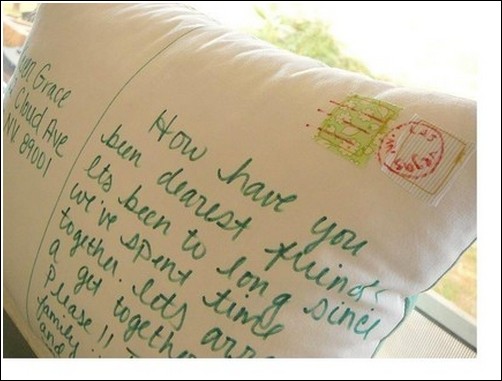 Grace
Cloud Ave
NV. 89001
How have you
been dearest friend
Its been to long since
we've spent time
together. lets
a get together
Please!!
family
and
LAS
vegas